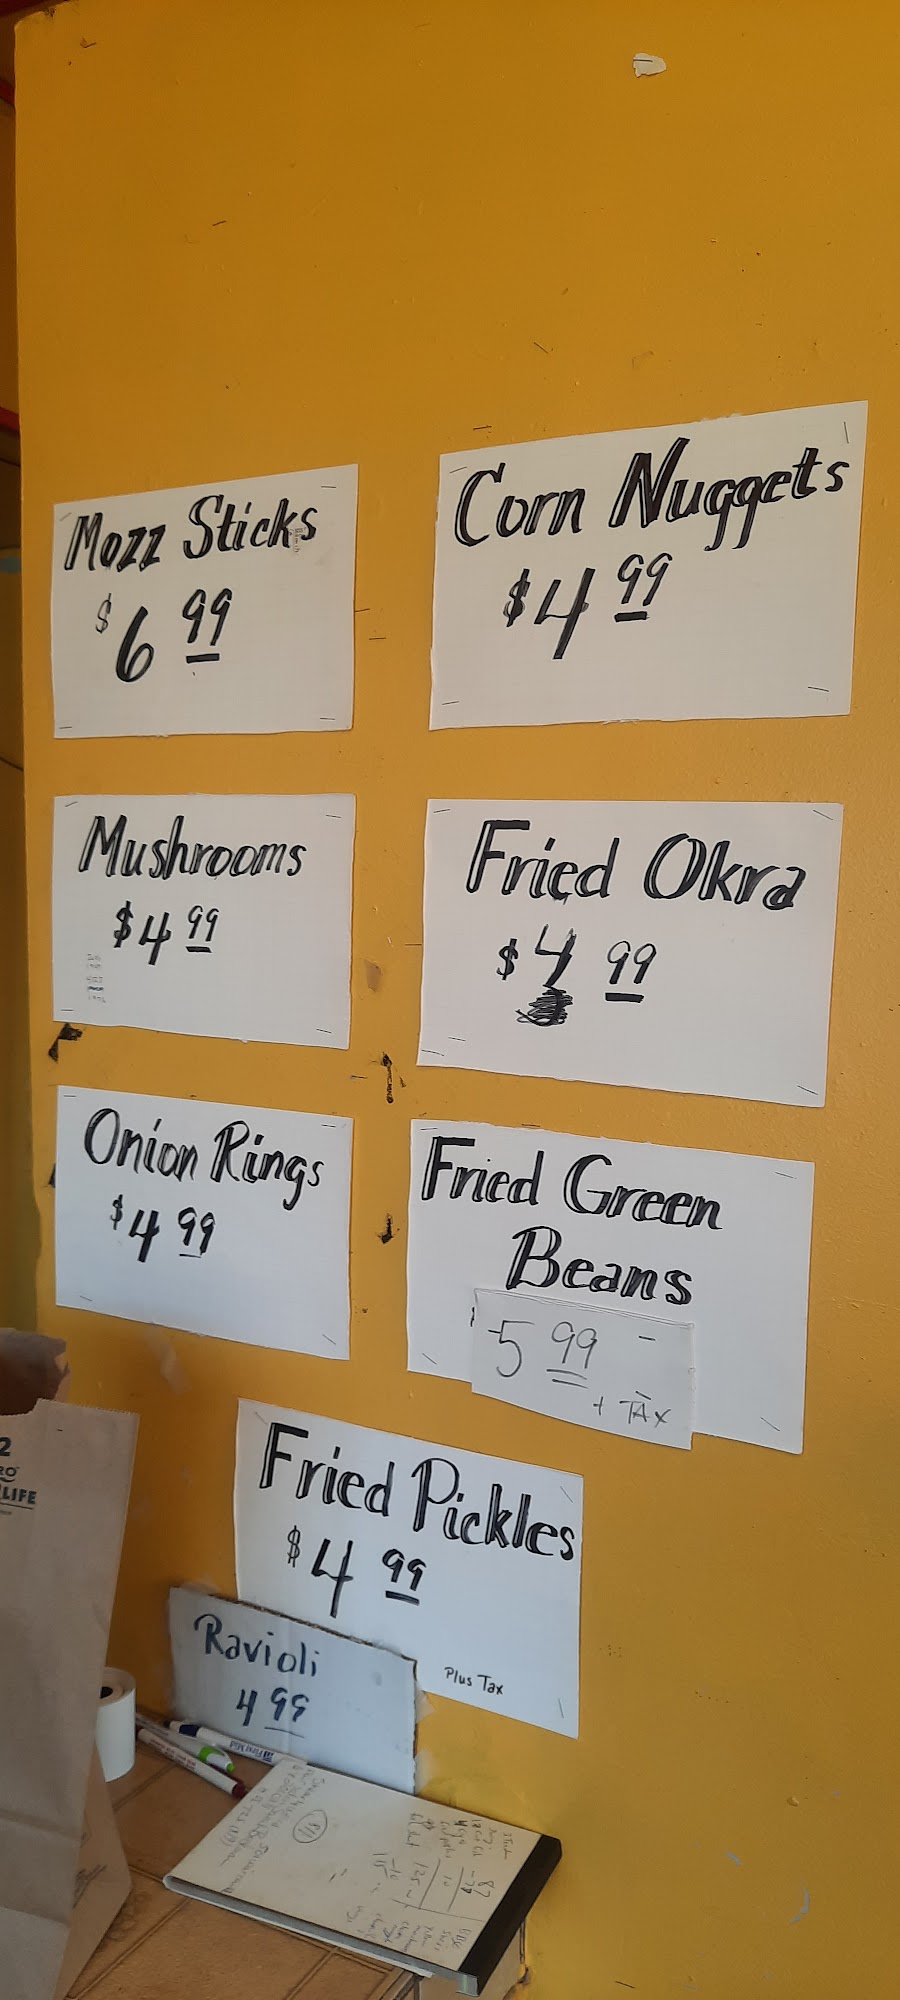 Mozz Sticks
$6 99
Corn Nuggets
$4 99
Mushrooms
$4 99
Fried Okra
$4 99
Onion Rings
$4 99
Fried Green
Beans
5 99 -
+ TAX
Fried Pickles
$4 99
Plus Tax
Ravioli
4 99
2
LIFE
First Mid